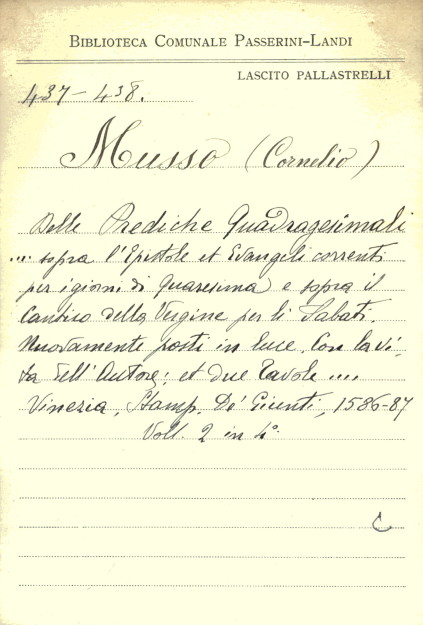 BIBLIOTECA COMUNALE PASSERINI-LANDI
LASCITO PALLASTRELLI
437-438.
Musso (Cornelio)
Delle Prediche Quadragesimali
... sopra l'Epistole et Evangeli correnti
per i giorni di Quaresima e sopra il
Cantico della Vergine per li Sabati.
Nuovamente posti in luce. Con la vi,
ta dell'Autore; et due Tavole ....
Vinezia, Stamp. De' Giunti, 1586-87
Voll. 2 in 4°.
C